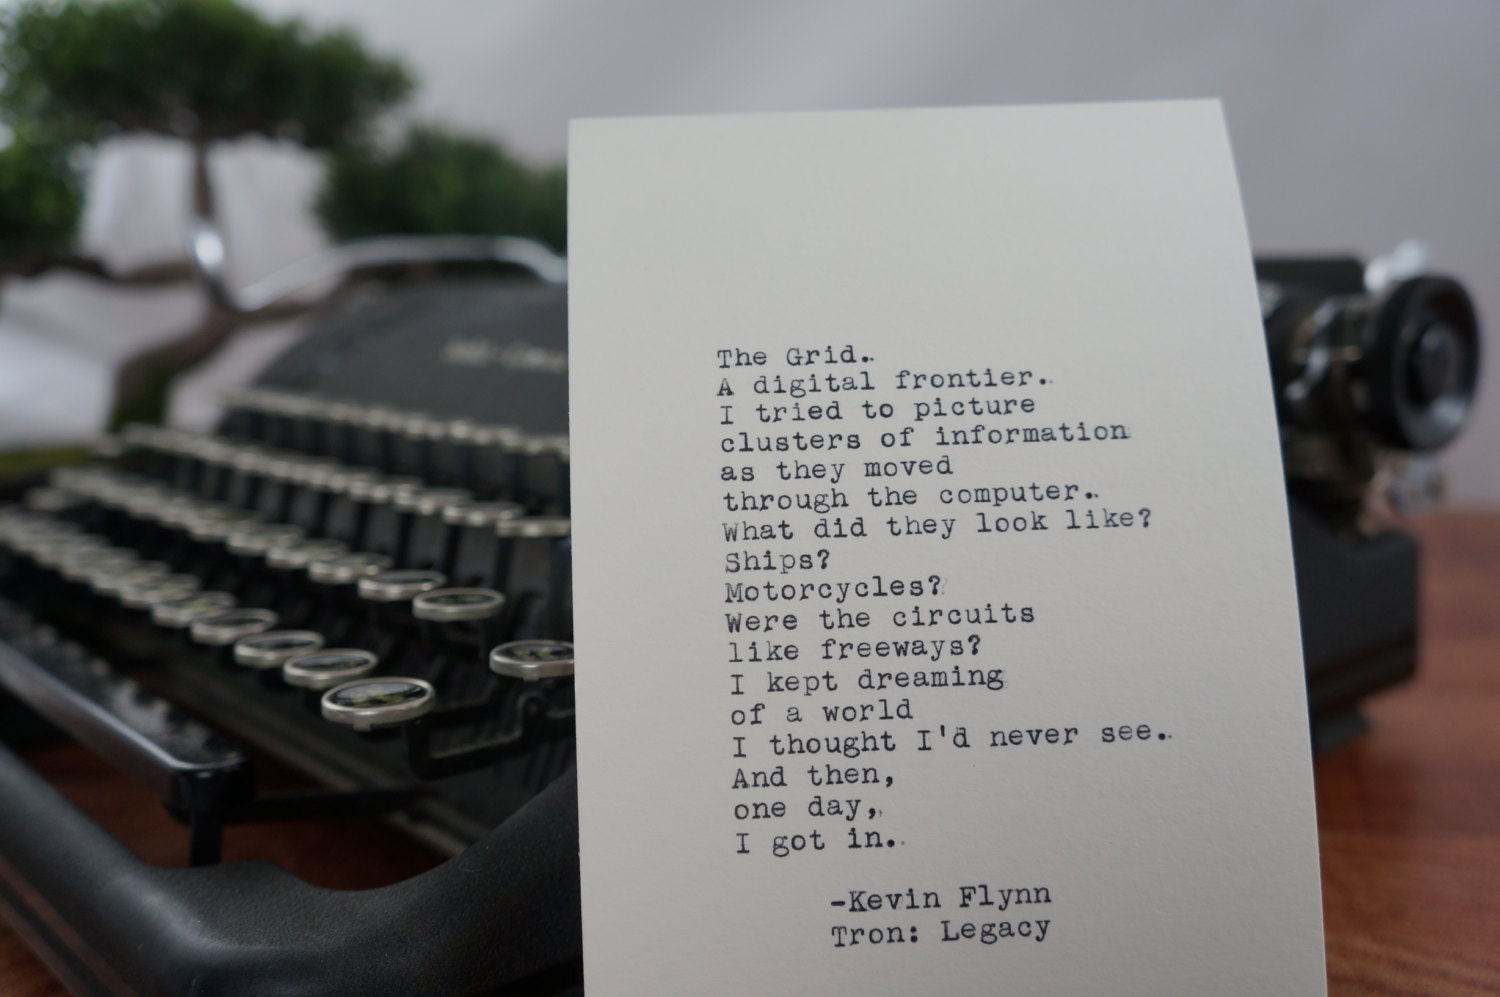 The Grid.
A digital frontier.
I tried to picture
clusters of information
as they moved
through the computer.
What did they look like?
Ships?
Motorcycles?
Were the circuits
like freeways?
I kept dreaming
of a world
I thought I'd never see.
And then,
one day,
I got in.
-Kevin Flynn
Tron: Legacy